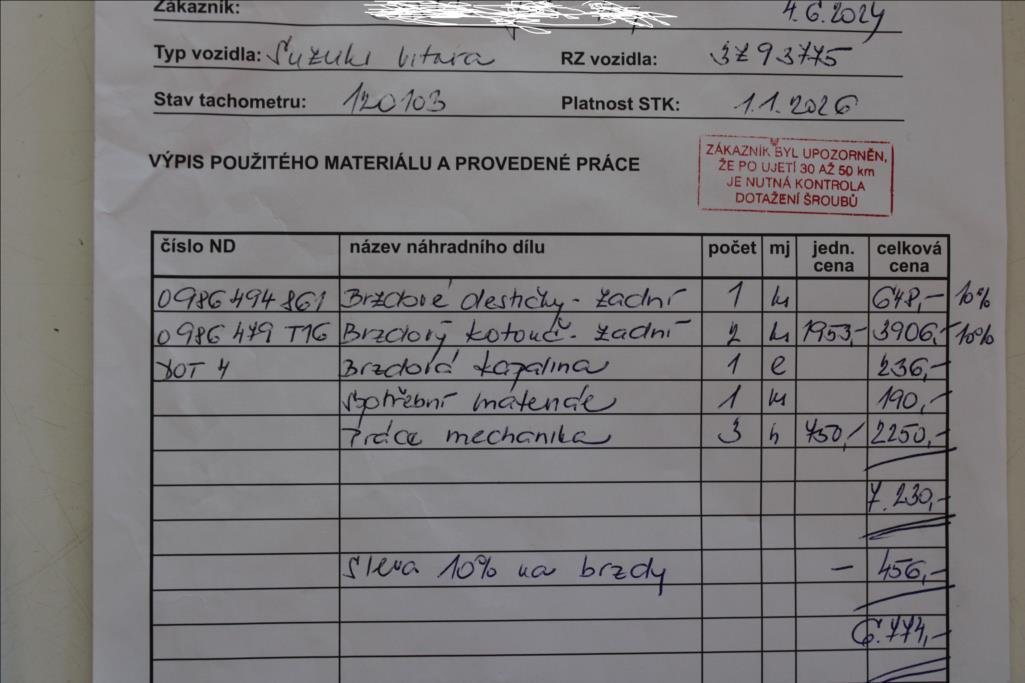 Zákazník: 4.6.2024
Typ vozidla: Suzuki Vitara RZ vozidla: 3Z9 3775
Stav tachometru: 120103 Platnost STK: 1.1.2026
VÝPIS POUŽITÉHO MATERIÁLU A PROVEDENÉ PRÁCE
ZÁKAZNÍK BYL UPOZORNĚN,
ŽE PO UJETÍ 30 AŽ 50 km
JE NUTNÁ KONTROLA
DOTAŽENÍ ŠROUBŮ
číslo ND název náhradního dílu počet mj jedn. cena celková cena
0986 494 861 Brzdové destičky - zadní 1 ks 648,- 10%
0986 479 T16 Brzdový kotouč - zadní 2 ks 1953,- 3906,- 10%
DOT 4 Brzdová kapalina 1 l 236,-
Spotřební materiál 1 ks 190,-
Práce mechanika 3 h 750,- 2250,-
7.230,-
Sleva 10% na brzdy - 456,-
6.774,-